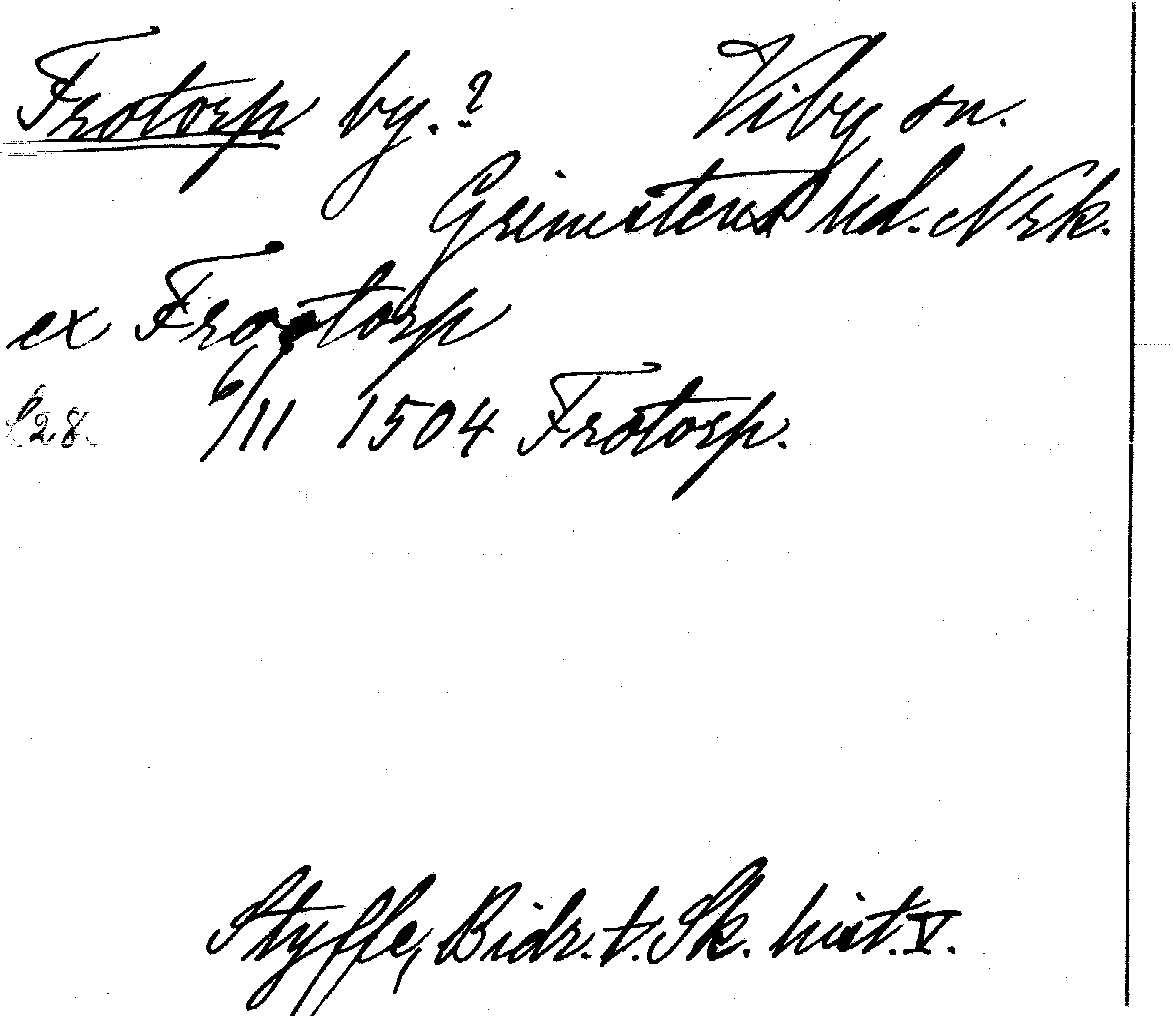 Frotorp by.? Viby sn.
Grimstens hd. Nrk.
ex Frotorp
s. 28. 6/11 1504 Frotorp.
Styffe, Bidr. t. Sk. hist. V.